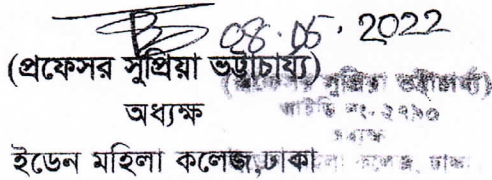 08.05.2022
(প্রফেসর সুপ্রিয়া ভট্টাচার্য্য)
অধ্যক্ষ
ইডেন মহিলা কলেজ,ঢাকা